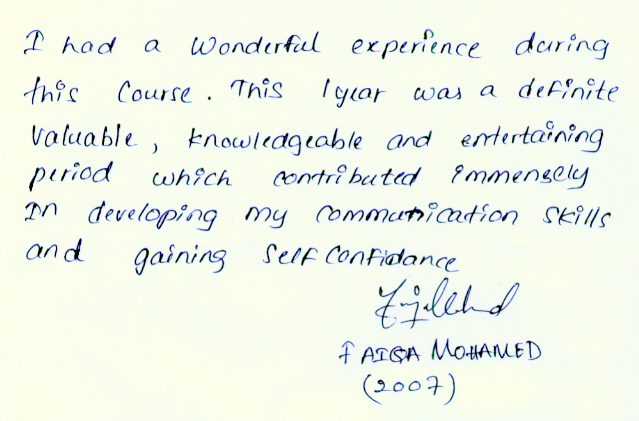 I had a wonderful experience during
this course. This 1 year was a definite
valuable, knowledgeable and entertaining
period which contributed immensely
In developing my communication skills
and gaining self confidance
FAIQA MOHAMED
(2007)